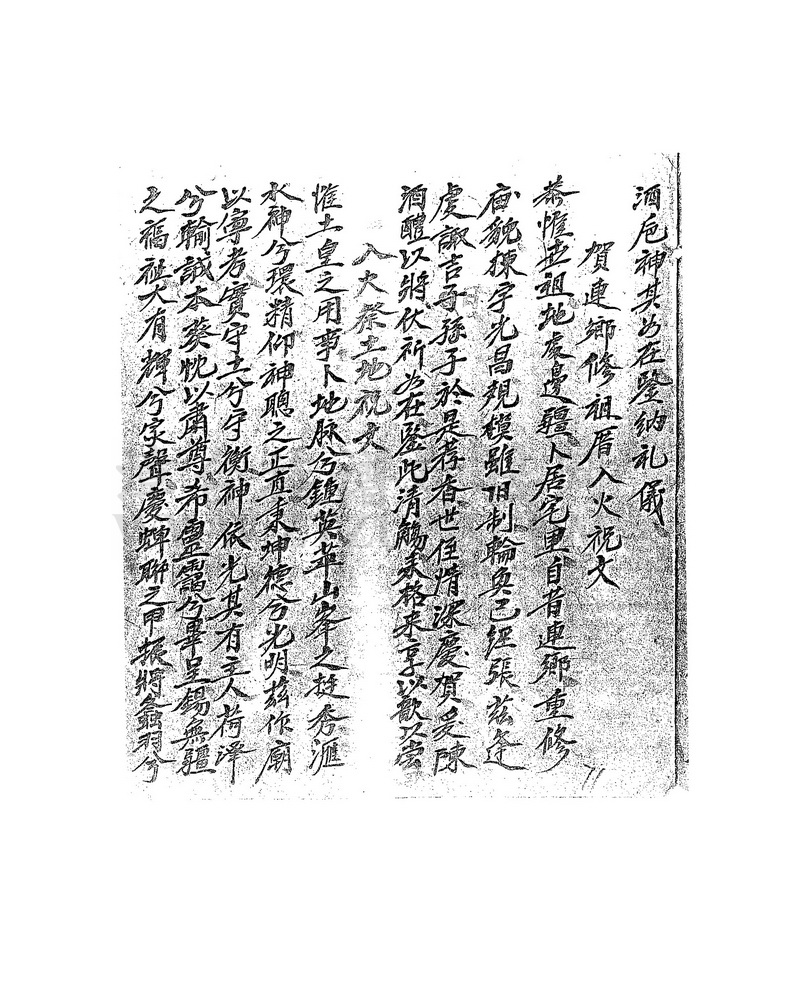 酒卮神其如在鑒纳礼儀
賀連鄉修祖厝入火祝文
恭惟世祖地處邊疆卜居宅里自昔連鄉重修
庙貌棟宇光昌規模雖旧制輪奐已經張茲逢
虔諏吉子孫子於是荐香世住情深慶賀爰陳
酒醴以將伏祈如在鑒此清觴來格來享以歆以嘗
入火祭土地祝文
惟土皇之用事卜地脉兮鍾英華山峯之挺秀滙
水神兮環精仰神聰之正直秉坤德兮光明茲作廟
以寧考實守土兮守衡神依光其有主人荷澤
兮輸誠本葵忱以肅尊希靈靄兮畢呈錫無疆
之福祉大有輝兮家聲慶蟬聯之甲振將螽羽兮